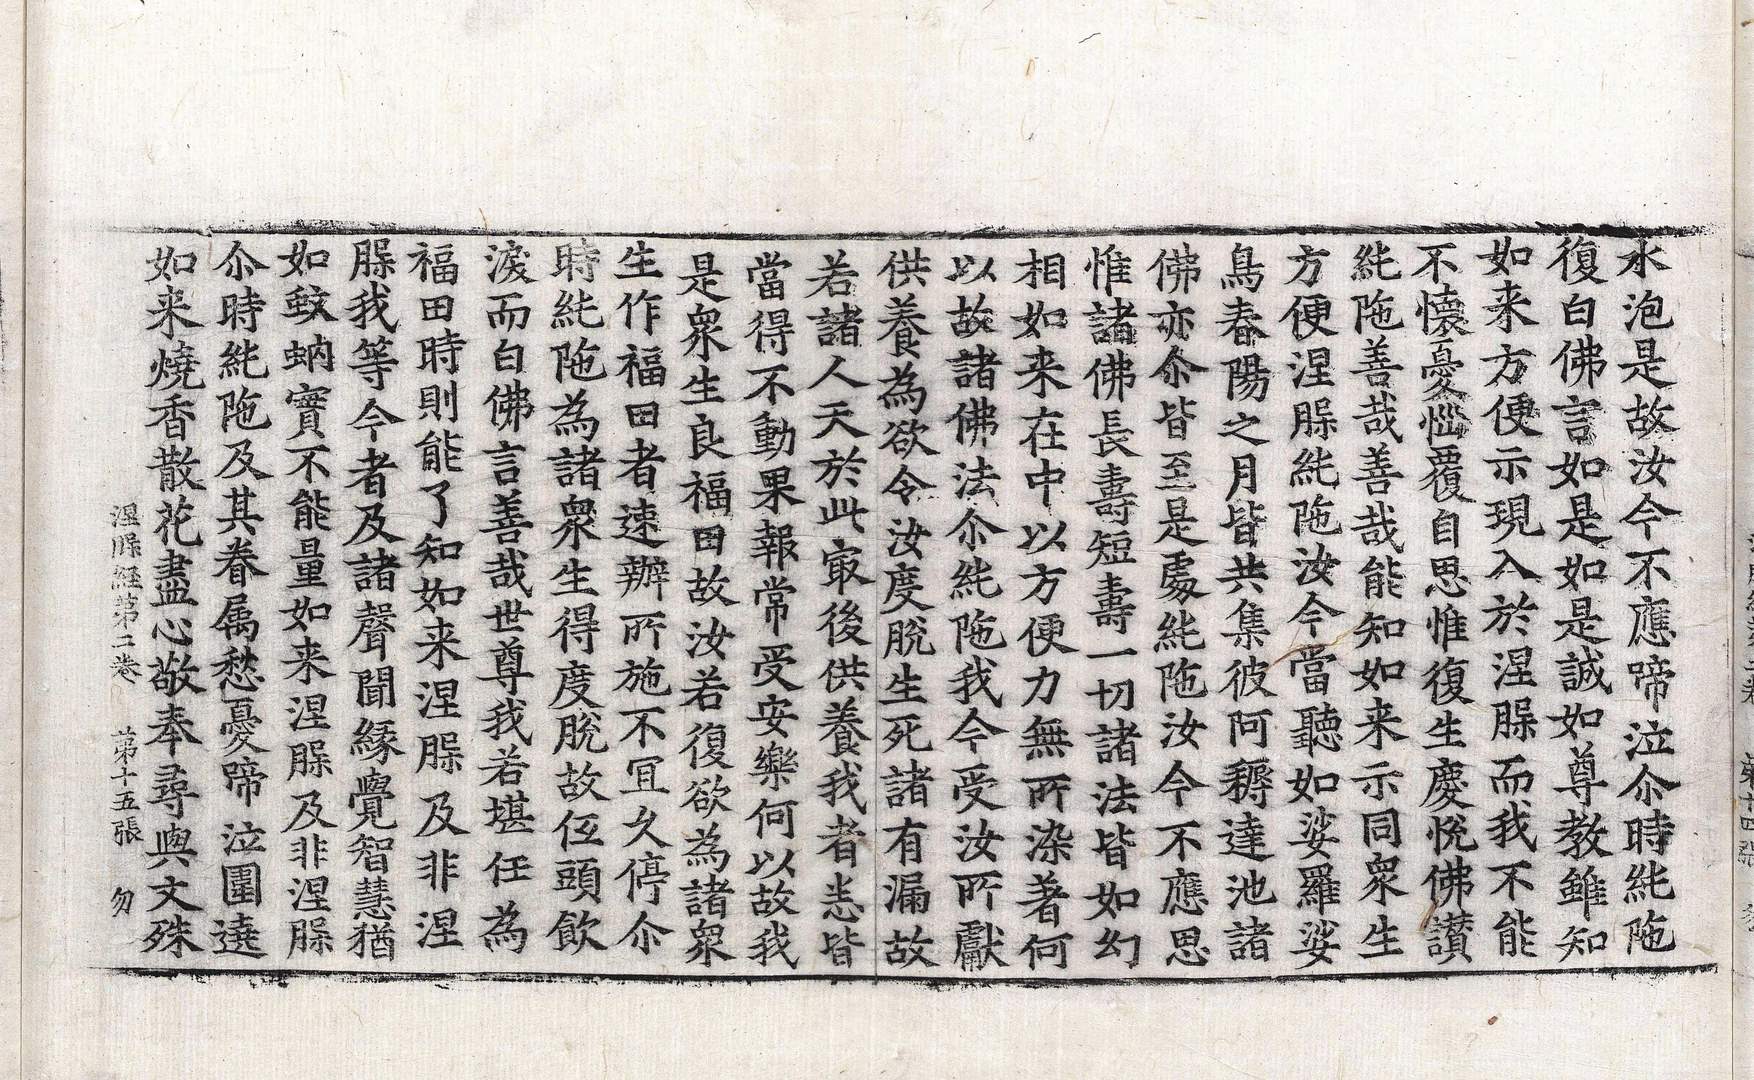 水泡是故汝今不應啼泣尒時純陁
復白佛言如是如是誠如尊教雖知
如来方便示現入於涅槃而我不能
不懷憂惱覆自思惟復生慶悅佛讃
純陁善哉善哉能知如来示同衆生
方便涅槃純陁汝今當聽如娑羅娑
鳥春陽之月皆共集彼阿耨達池諸
佛亦尒皆至是處純陁汝今不應思
惟諸佛長壽短壽一切諸法皆如幻
相如来在中以方便力無所染著何
以故諸佛法尒純陁我今受汝所獻
供養為欲令汝度脫生死諸有漏故
若諸人天於此㝡後供養我者悉皆
當得不動果報常受安樂何以故我
是衆生良福田故汝若復欲為諸衆
生作福田者速辦所施不冝久停尒
時純陁為諸衆生得度脫故伍頭飲
淚而白佛言善哉世尊我若堪任為
福田時則能了知如来涅槃及非涅
槃我等今者及諸聲聞緣覺智慧猶
如蚊蚋實不能量如来涅槃及非涅槃
尒時純陁及其眷属愁憂啼泣圍遶
如来燒香散花盡心敬奉尋與文殊
涅槃経第二卷 第十五張 勿